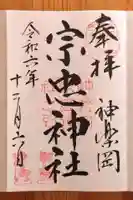 奉拝
神楽岡
宗忠神社
令和六年
十二月六日